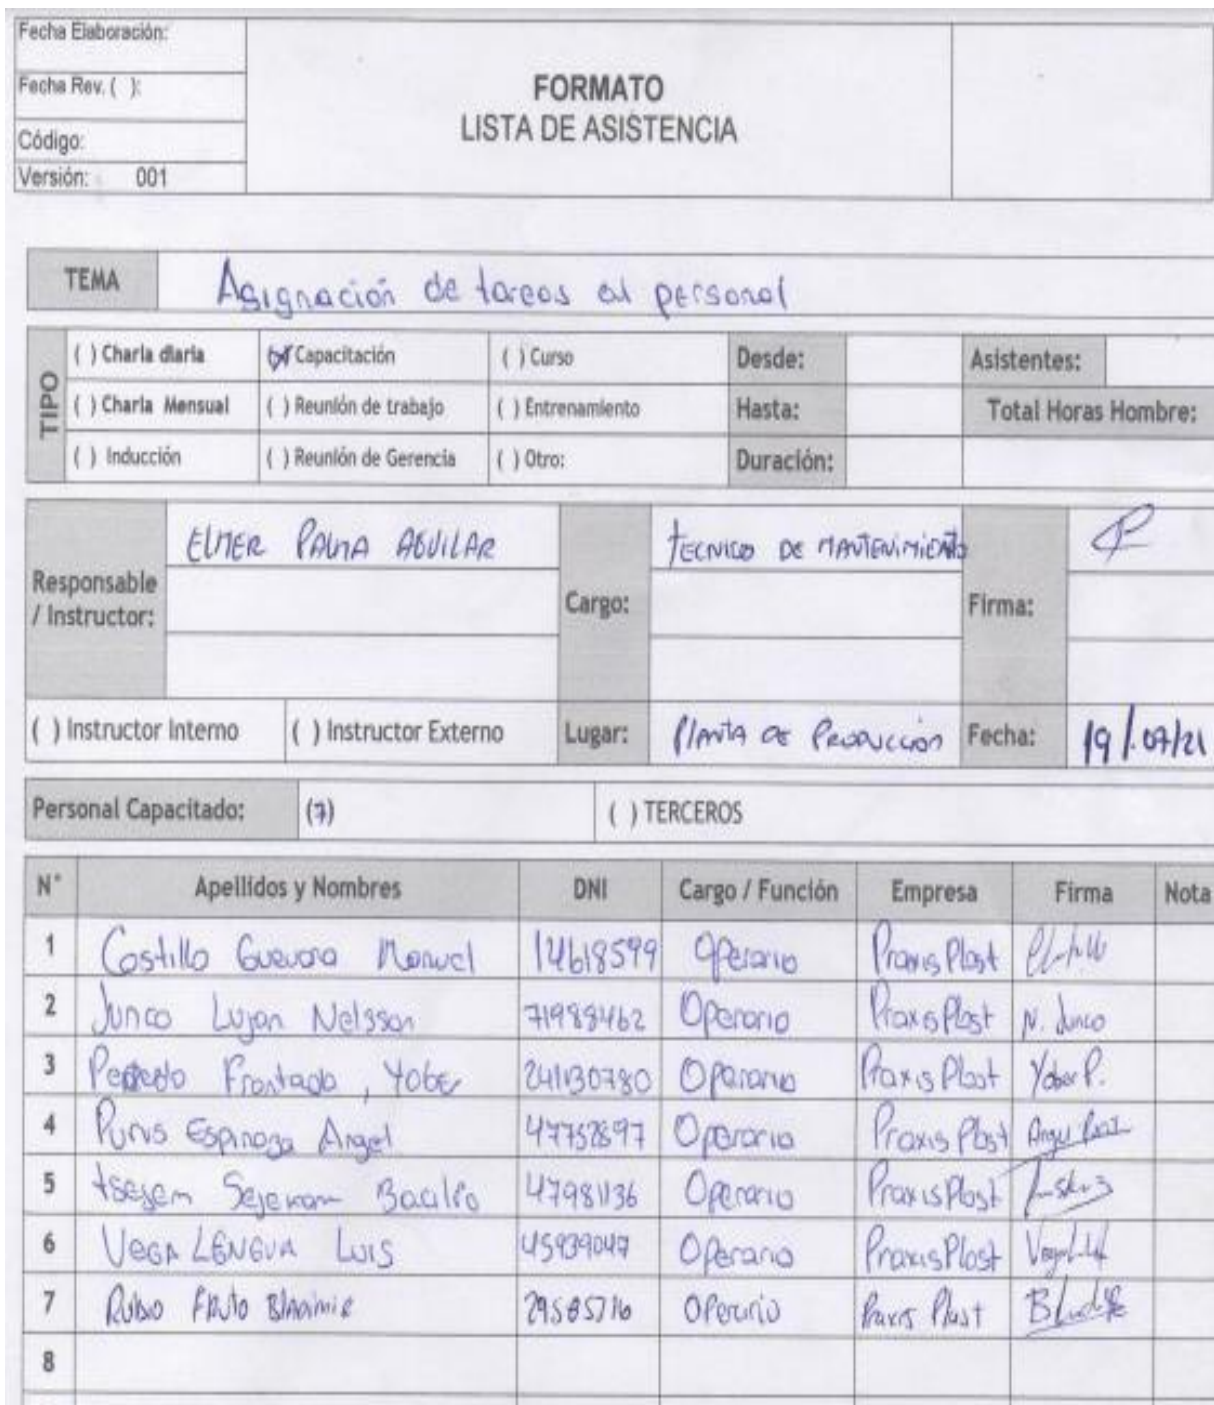 Fecha Elaboración:
Fecha Rev. ( ):
Código:
Versión: 001
FORMATO
LISTA DE ASISTENCIA
TEMA Asignación de tareas al personal
TIPO
( ) Charla diaria (X) Capacitación ( ) Curso Desde: Asistentes:
( ) Charla Mensual ( ) Reunión de trabajo ( ) Entrenamiento Hasta: Total Horas Hombre:
( ) Inducción ( ) Reunión de Gerencia ( ) Otro: Duración:
Responsable / Instructor: ELMER PALMA AGUILAR Cargo: TECNICO DE MANTENIMIENTO Firma:
( ) Instructor Interno ( ) Instructor Externo Lugar: PLANTA DE PRODUCCION Fecha: 19/07/21
Personal Capacitado: (7) ( ) TERCEROS
N° Apellidos y Nombres DNI Cargo / Función Empresa Firma Nota
1 Castillo Guevara Manuel 14618599 Operario Praxis Plast
2 Junco Lujan Nelsson 71988462 Operario Praxis Plast N. Junco
3 Frontado, Yober Operario Praxis Plast Yober P.
4 Espinoza Angel 47752897 Operario Praxis Plast
5 47981136 Operario Praxis Plast
6 VEGA LENGUA LUIS 45939047 Operario Praxis Plast
7 Rubio 29585716 Operario Praxis Plast
8